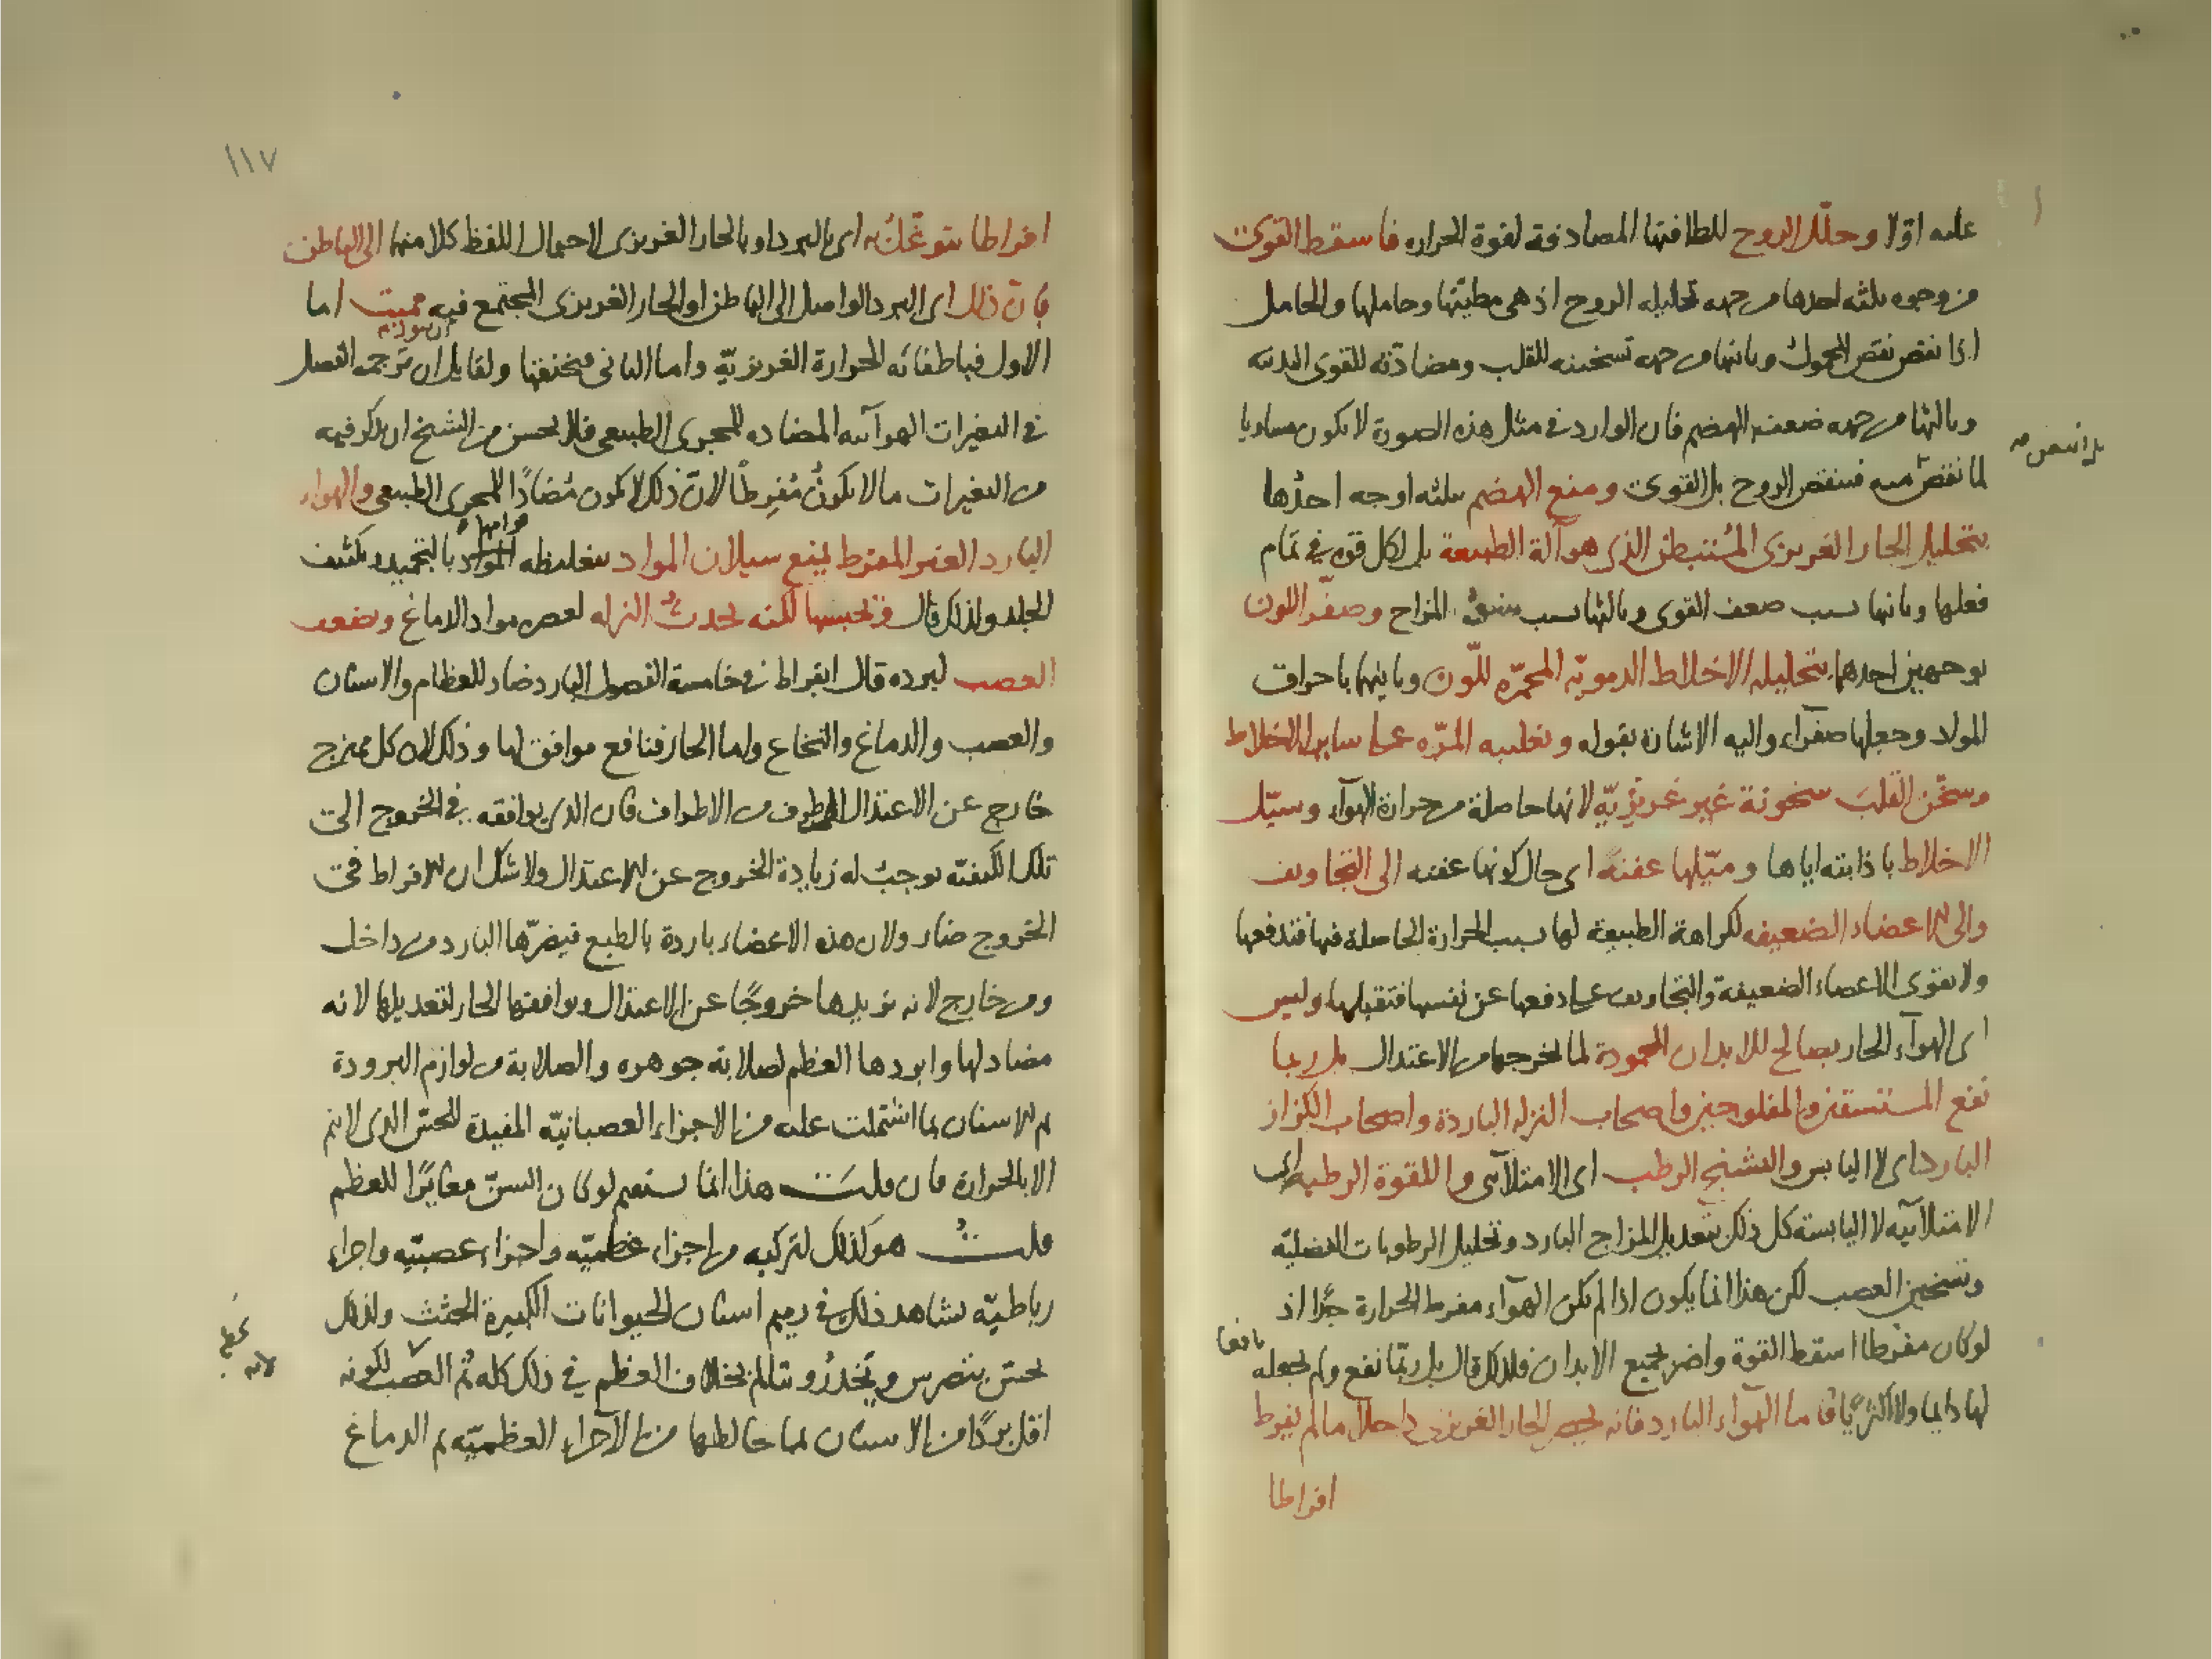 عليه اولا وحلّل الروح للطافتها المصادفة لقوة الحراره فاسقط القوى
من وجوه ثلثه احدها من جهه تحليله الروح اذ هى مطيّتها وحاملها والحامل
اذا نقص نقص المحمول وثانيها من جهه تسخينه للقلب ومضادّته للقوى البدنيه
وثالثها من جهه ضعفه الهضم فان الوارد فى مثل هذه الصورة لا يكون مساويا
لما نقص منه فينقص الروح بل القوى ومنع الهضم بثلثه اوجه احدُها
بتحليل الحار الغريزى المُستبطن الذى هو آلة الطبيعة بل لكل قوه فى تمام
فعلها وثانيها بسبب ضعف القوى وثالثها بسبب المزاج وصفّر اللون
بوجهين احدهما بتحليله الاخلاط الدمويّه المحمّره للّون وثانيهما باحراق
المواد وجعلها صفرآء واليه الاشارة بقوله وتغليبه المرّه على ساير الاخلاط
وسخّن القلبَ سخونة غير غريزيّه لانها حاصلة من حرارة الهوآء وسيّل
الاخلاط باذابته اياها وميّلها عفنةً اى حال كونها عفنه الى التجاويف
والى الاعضاء الضعيفه لكراهة الطبيعة لها بسبب الحرارة الحاصلة فيها فتدفعها
ولا تقوى الاعضاء الضعيفة والتجاويف على دفعها عن نفسها فتقبلها وليس
اى الهوآء الحار بصالح للابدان المحمودة لما يخرجها من الاعتدال بل ربما
نفع المستسقين والمفلوجين واصحاب النزله الباردة واصحاب الكزاز
البارد اى لا اليابس والتشنج الرطب اى الامتلآئى واللقوة الرطبه اى
الامتلآئيه لا اليابسة كل ذلك بتعديل المزاج البارد وتحليل الرطوبات الفضليّه
وتسخين العصب لكن هذا انما يكون اذا لم يكن الهوآء مفرط الحرارة جدًّا اذ
لو كان مفرطا اسقط القوة واضر بجميع الابدان فلذلك قال بل ربّما نفع ولم يجعله نافعا
لها دايما ولا اكثريًّا واما الهوآء البارد فانه يحصر الحار الغريزى داخلا ما لم يفرط
افراطا
١١٧
افراطا يتوغّل به اى بالبرد او بالحار الغريزى لاحتمال اللفظ كلا منهما الى الباطن
فان ذلك اى البرد الواصل الى الباطن او الحار الغريزى المجتمع فيه مميت اما
الاول فباطفائه الحرارة الغريزيّه واما الثانى فبخنقها ولقايل ان يقول ترجمه الفصل
فى التغيرات الهوآئيه المضاده للمجرى الطبيعى فلا يحسن من الشيخ ان يذكر فيه
من التغيرات ما لا يكونُ مُفرِطًا لانّ ذلك لا يكون مُضادًّا للمجرى الطبيعى والهواء
البارد الغير المفرط يمنع سيلان المواد بتغليظه بالتجميد وتكثيف
الجلد ولذلك قال وتحبسها لكنه يحدثُ النزله لعصره مواد الدماغ ويضعف
العصب لبرده قال ابقراط فى خامسة الفصول البارد ضار للعظام والاسنان
والعصب والدماغ والنخاع واما الحار فنافع موافق لها وذلك لان كل ممتزج
خارج عن الاعتدال الى طرف من الاطراف فان الذى يوافقه فى الخروج الى
تلك الكيفيّه يوجب له زيادة الخروج عن الاعتدال ولا شك ان الافراط فى
الخروج ضار ولان هذه الاعضاء باردة بالطبع فيضرّها البارد من داخل
ومن خارج لانه يزيدها خروجًا عن الاعتدال ويوافقها الحار لتعديلها لانه
مضاد لها وابردها العظم لصلابة جوهره والصلابة من لوازم البرودة
ثم الاسنان بما اشتملت عليه من الاجزاء العصبانيّه المفيدة للحسّ الذى لا يتم
الا بالحرارة فان قلتَ هذا انما يستقيم لو كان السنّ مغايرًا للعظم
قلتُ هو كذلك لتركبه من اجزاء عظميّه واجزاء عصبيّه واجزاء
رباطيّه يشاهد ذلك فى رميم اسنان الحيوانات الكبيرة الجثث ولذلك
يحسّ بتضرس ويَخدَرُ ويتالم بخلاف العظم فى ذلك كله ثم العصب لكونه
اقل بردًا من الاسنان لما خالطها من الاجزاء العظميّه ثم الدماغ